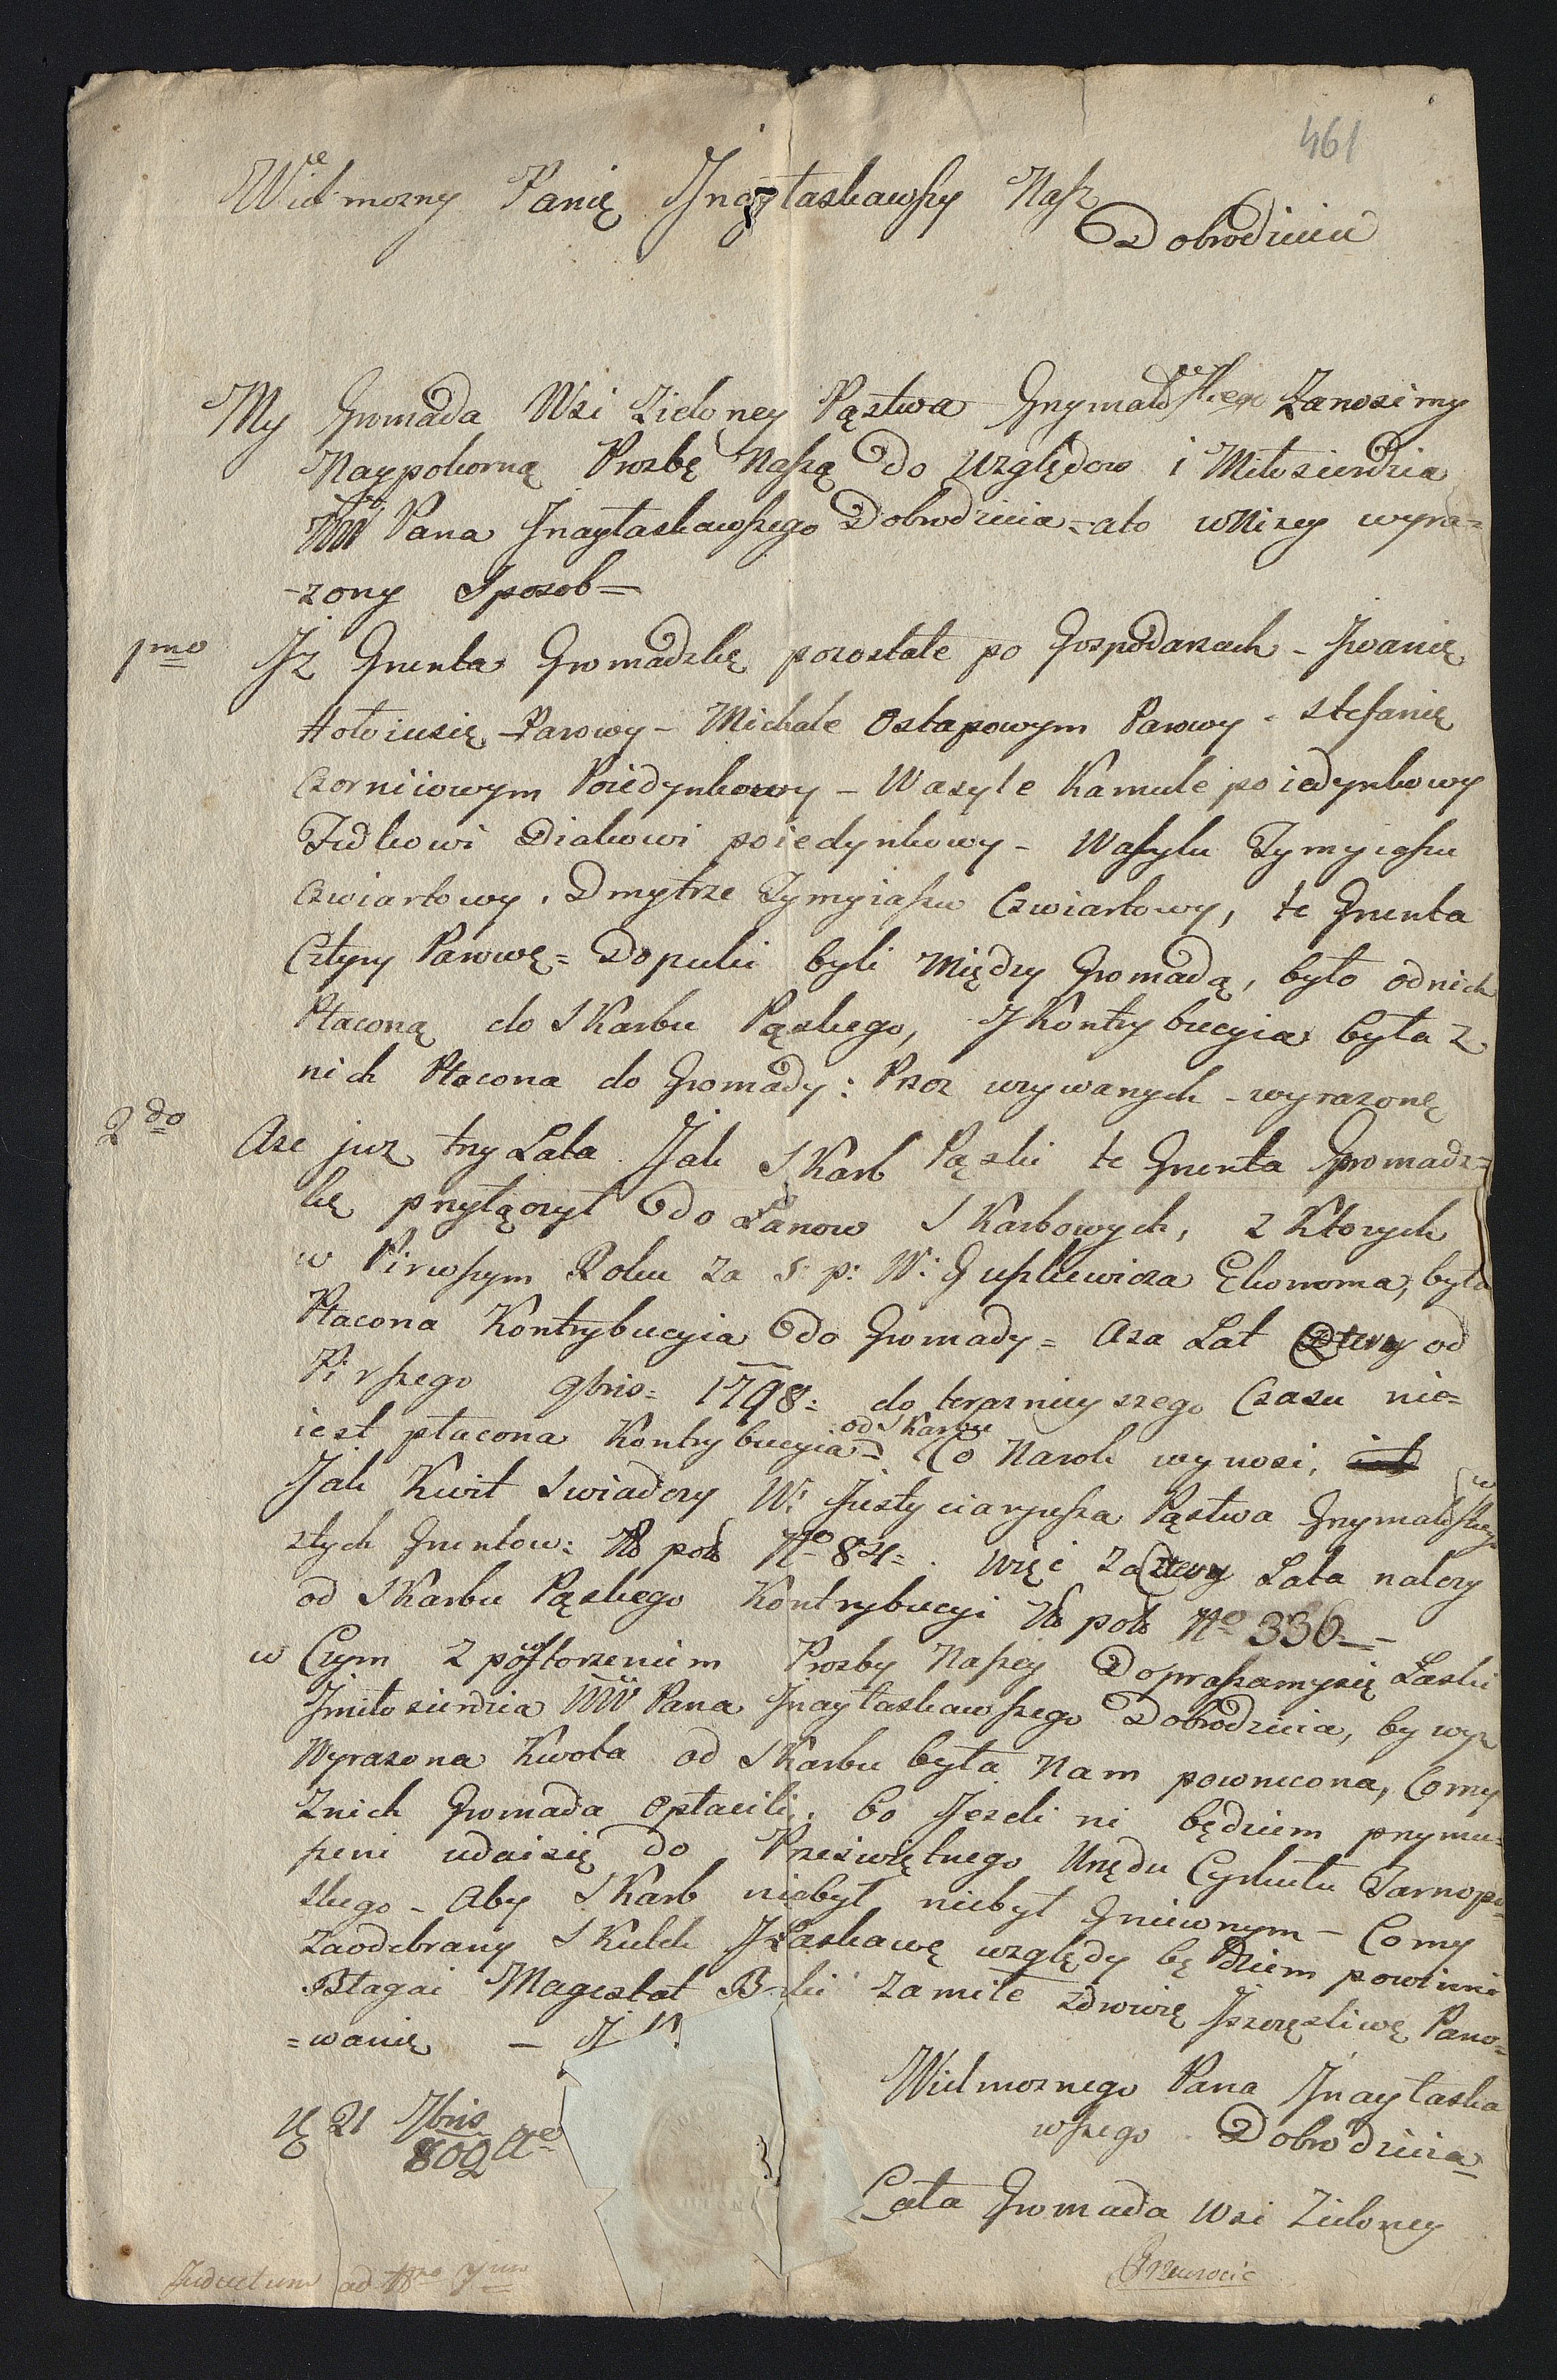 461
Wielmozny Panię Jnayłaskawszy Nasz
Dobrodzieiu
My Gromada Wsi Zieloney Pąstwa Grymałoskiego Zanosimy
Naypokorną Prozbę Naszą Do Względow i Miłosierdzia
WW Pana Jnayłaskawszego Dobrodzieia – ato wNizey wyra=
-zony Sposob =
1mo Jz Grunta Gromadzkię pozostałe po Gospodarzach – Jwanię
Hołoiusię Parowy – Michale Ostapowym Parowy – Stefanię
Czorniiowym Poiedynkowy – Wasyle Kamule poiedynkowy
Fedkowi Diakowi poiedynkowy – Waszylu Tymyiaszu
Czwiartowy, Dmytrze Tymyiaszu Czwiartowy, te Grunta
Cztyry Parowę = Dopuki byli Między Gromadą, było odnich
Płaconą do SKarbu Pąskego, J Kontrybucyia była z
nich Płacona do Gromady: Przez uzywanych – wyrazonę
2do Aze juz try Lata Jak SKarb Pąski te Grunta Gromadz=
kię przyłączył Do Łanow SKarbowych, z Ktorych
w Pirwszym Roku za S: p: W: Guszkiewicza Ekonoma, była
Płacona Kontrybucyia Do Gromady = Aza Lat Cztery od
Pirszego 9bris = 1798: do teraznieyszego Czasu nie=
iest płacona Kontrybucyia od SKarbu = Co Narok wynosi,
Jak Kwit Swiadczy W: Justyciaryusza Pąstwa Grymałowskiego
ztych Gruntow: Zł pols No 84 = . więc za Cztery Lata nalezy
od SKarbu Pąskego Kontrybucyi Zł pols No 336 =
w Czym z powtorzeniim Prozby Naszey Dopraszamysię Łaski
Jmiłosierdzia WW Pana Jnayłaskawszego Dobrodzieia, by wyz
Wyrazona Kwota od SKarbu była Nam powrucona, Comy
Znich Gromada opłacili, bo Jezeli ni będziem przymu=
szeni udaisię do Przeswiętnego Urzędu Cyrkułu Tarnopo=
lskego – Aby SKarb niebył niebył Gniiwnym – Comy
Zaodebrany SKutek JŁaskawę względy będziem powinni
Błagai Magestat Bo-ki za miłe zdrowię Jszczęsliwę Pano=
=wanię – J
Wielmoznego Pana Jnayłaska
wszego Dobrodzieia =
D 21 7bris
802 Ao
Cała Gromada Wsi Zieloney